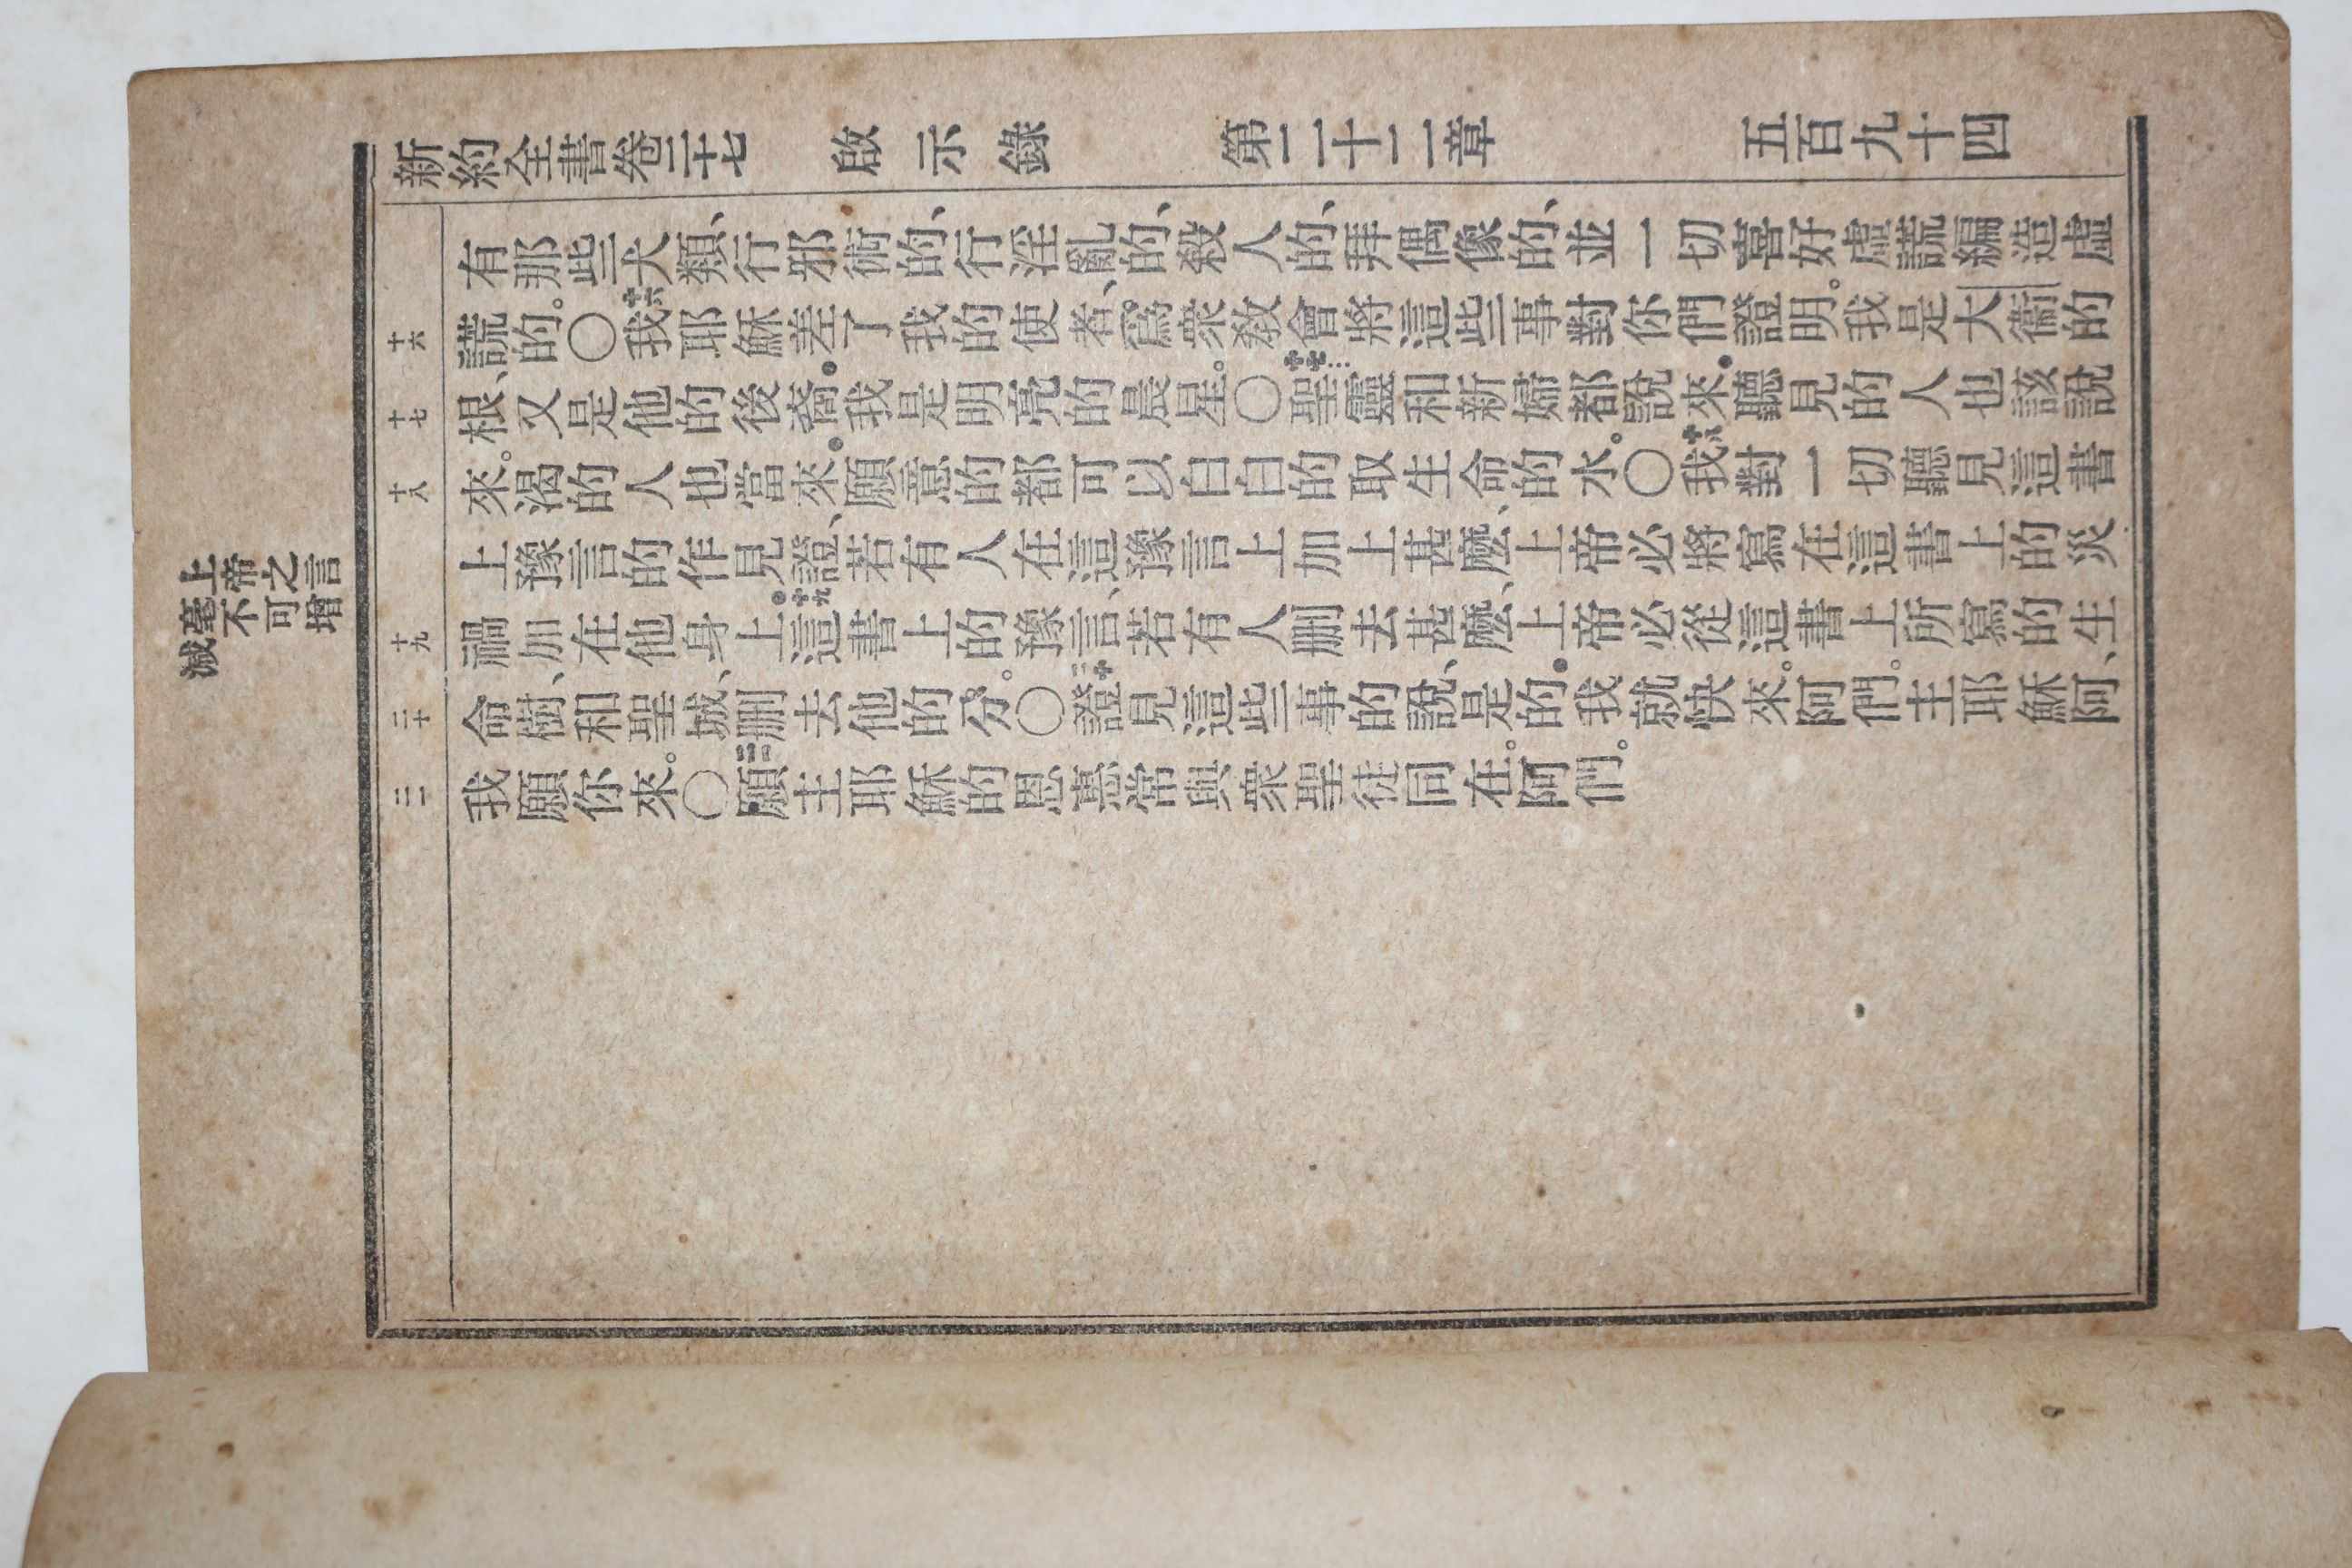 上帝之言
毫不可增
減
新約全書卷二十七 啟示錄 第二十二章 五百九十四
有那些犬類、行邪術的、行淫亂的、殺人的、拜偶像的、並一切喜好虛謊編造虛
十六
謊的。〇十六我耶穌差了我的使者、爲衆敎會將這些事對你們證明。我是大衞的
十七
根、又是他的後裔.我是明亮的晨星。〇十七聖靈和新婦都說來.聽見的人也該說
十八
來。渴的人也當來.願意的都可以白白的取生命的水。〇十八我對一切聽見這書
上豫言的作見證、若有人在這豫言上加上甚麼、上帝必將寫在這書上的災
十九
禍加在他身上.十九這書上的豫言、若有人刪去甚麼、上帝必從這書上所寫的生
二十
命樹、和聖城、刪去他的分。〇二十證見這些事的說、是的.我就快來。阿們。主耶穌阿、
二一
我願你來。〇二一願主耶穌的恩惠常與衆聖徒同在。阿們。